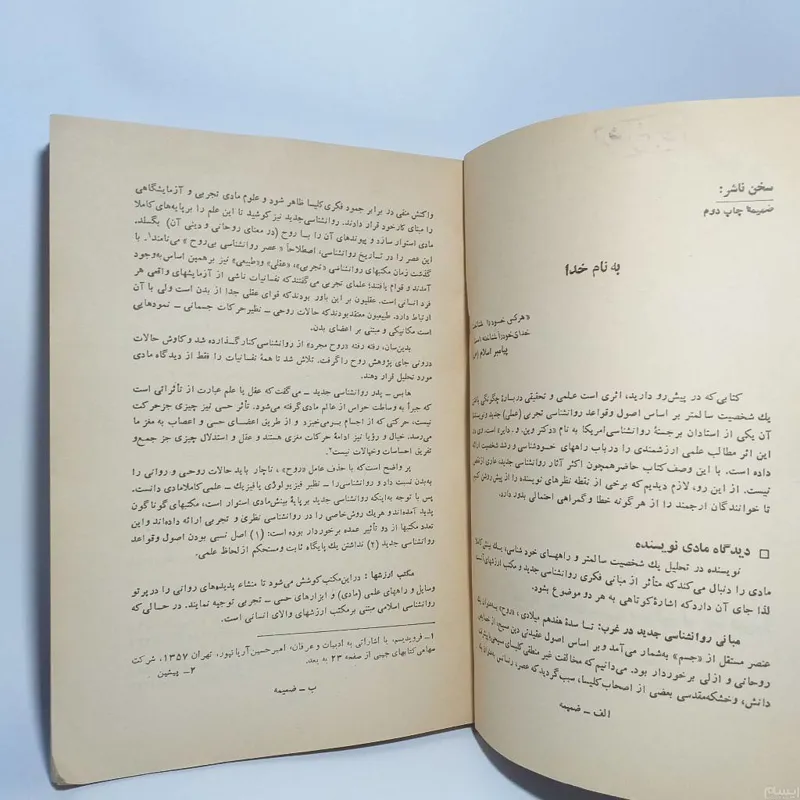 سخن ناشر:
ضمیمهٔ چاپ دوم
به نام خدا
«هرکس خود را شناخت
خدای خود را شناخته است
پیامبر اسلام (ص)
کتابی که در پیش رو دارید، اثری است علمی و تحقیقی در بارهٔ چگونگی یافتن
یك شخصیت سالمتر بر اساس اصول وقواعد روانشناسی تجربی (عملی) جدید و نویسندهٔ
آن یکی از استادان برجستهٔ روانشناسی آمریکا به نام «دکتر وین. و. دایر» است. وی در
این اثر مطالب علمی ارزشمندی را درباب راههای خودشناسی و رشد شخصیت ارائه
داده است. با این وصف کتاب حاضر همچون اکثر آثار روانشناسی جدید، عاری از نقص
نیست. از این رو، لازم دیدیم که برخی از نقطه نظرهای نویسنده را از پیش روشن کنیم
تا خوانندگان ارجمند را از هرگونه خطا وگمراهی احتمالی بدور دارد.
دیدگاه مادی نویسنده
نویسنده در تحلیل یك شخصیت سالمتر و راههای خود شناسی، یك بینش کاملا
مادی را دنبال می‌کند که متأثر از مبانی فکری روانشناسی جدید و مکتب ارزشهای آنست
لذا جای آن دارد که اشارهٔ کوتاهی به هر دو موضوع بشود.
مبانی روانشناسی جدید در غرب: تا سدهٔ هفدهم میلادی، «روح»، به‌عنوان یك
عنصر مستقل از «جسم» به‌شمار می‌آمد و بر اساس اصول عقیدتی دین مسیح، از
روحانی و ازلی برخوردار بود. می‌دانیم که مخالفت غیر منطقی کلیسای مسیحی با پیشرفت
دانش، وخشکه‌مقدسی بعضی از اصحاب کلیسا، سبب گردید که عصر رنسانس به‌عنوان یك
الف ــ ضمیمه
واکنش منفی در برابر جمود فکری کلیسا ظاهر شود و علوم مادی تجربی و آزمایشگاهی
را مبنای کار خود قرار دادند. روانشناسی جدید نیز کوشید تا این علم را بر پایه‌های کاملا
مادی استوار سازد و پیوندهای آن را بـا روح (در معنای روحانی و دینی آن) بگسلد.
این عصر را در تـاریخ روانشناسی، اصطلاحاً «عصر روانشناسی بی‌روح» می‌نامند۱ـ با
گذشت زمان مکتبهای روانشناسی «تجربی»، «عقلی» و «طبیعی» نیز برهمین اساس به‌وجود
آمدند و قوام یافتند؛ علمای تجربی می‌گفتند که نفسانیات ناشی از آزمایشهای واقعی هر
فرد انسانی است. عقلیون بر این باور بودند که قوای عقلی جدا از بدن است ولی با آن
ارتباط دارد. طبیعیون معتقد بودند که حالات روحی ـ نظیر حرکات جسمانی ـ نمودهایی
است مکانیکی و مبتنی بر اعضای بدن.
بدین‌سان، رفته رفته «روح مجرد» از روانشناسی کنار گـذارده شد و کاوش حالات
درونی جای پژوهش روح را گرفت. تلاش شد تا همهٔ نفسانیات را فقط از دیدگاه مادی
مورد تحلیل قرار دهند.
هابس ـ پدر روانشناسی جدید ـ می‌گفت که عقل یا علم عبارت از تأثراتی است
که جبراً به وساطت حواس از عالم مادی گرفته می‌شود. تأثر حسی نیز چیزی جز حرکت
نیست، حرکتی که از اجسام بر می‌خیزد و از طریق اعضـای حسی و اعصاب به مغز ما
می‌رسد. خیال و رؤیا نیز ادامهٔ حرکات مغزی هستند و عقل و استدلال چیزی جز جمع و
تفریق احساسات و خیالات نیست.۲
پر واضح است که با حذف عامل «روح»، ناچار باید حالات روحی و روانی را
به‌بدن نسبت داد و روانشناسی را ـ نظیر فیزیولوژی یا فیزیك ـ علمی کاملا مادی دانست.
پس با توجه به‌اینکه روانشناسی جدید بر پایهٔ بینش مادی استوار است، مکتبهای گوناگون
پدید آمده‌اند و هر یك روش خاصی را در روانشناسی نظری و تجربی ارائه داده‌اند و این
تعدد مکتبها از دو تأثیر عمده برخوردار بوده است: (۱) اصل نسبی بودن اصول و قواعد
روانشناسی جدید (۲) نداشتن یك پایگاه ثابت و مستحکم از لحاظ علمی.
مکتب ارزشها: در این مکتب کوشش می‌شود تا منشاء پدیده‌های روانی را در پرتو
وسایل و راههای علمی (مادی) و ابزارهای حسی ـ تجربی توجیه نمایند. در حـالی‌که
روانشناسی اسلامی مبتنی بر مکتب ارزشهای والای انسانی است.
۱ـ فرویدیسم، با اشاراتی به ادبیات و عرفان، امیرحسین آریانپور، تهران ۱۳۵۷، شرکت
سهامی کتابهای جیبی از صفحه ۲۳ به بعد.
۲ـ پیشین
ب ــ ضمیمه
ایسام